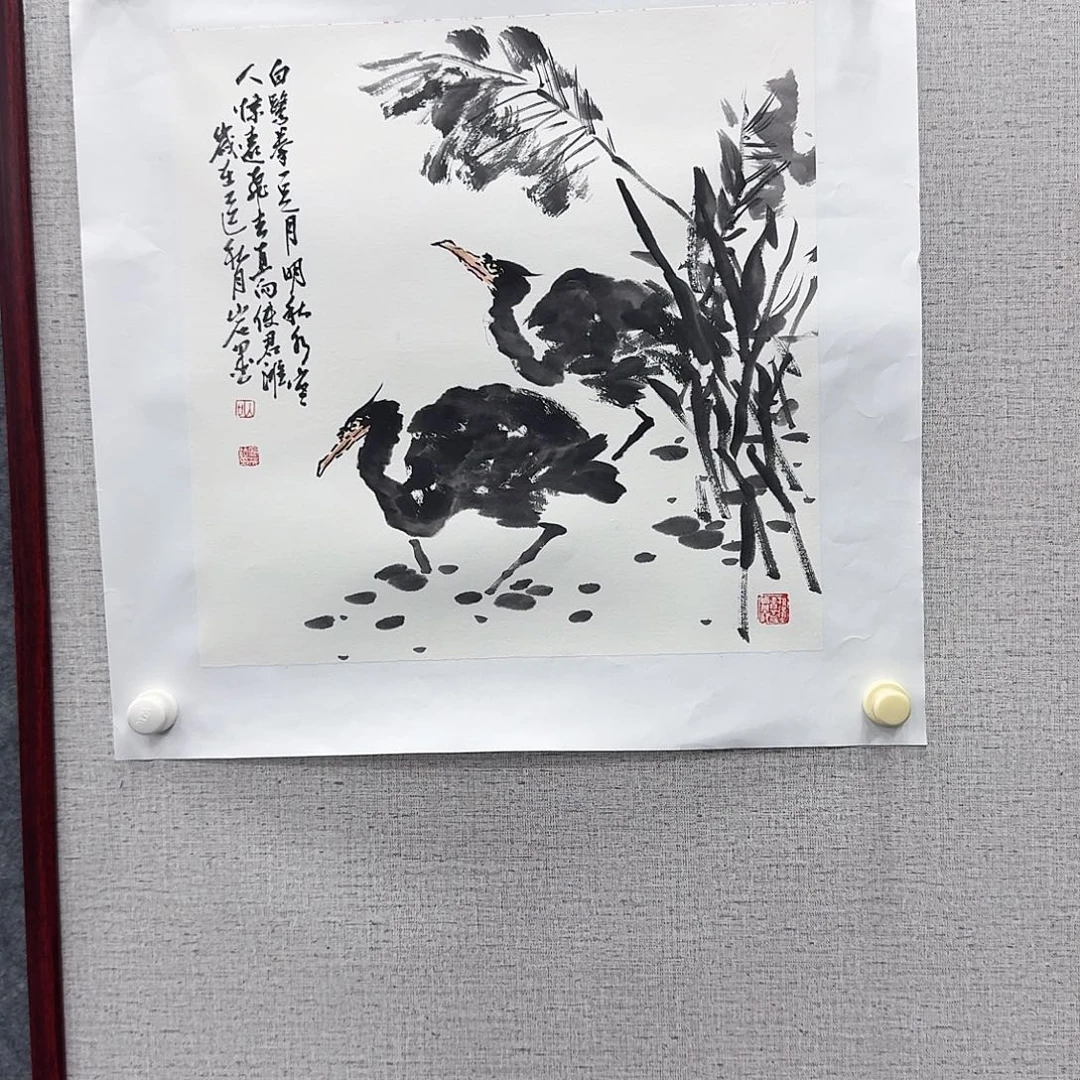 白鹭拳一足月明秋水寒
人惊遠飛去直向使君滩
歲在秋月岩墨